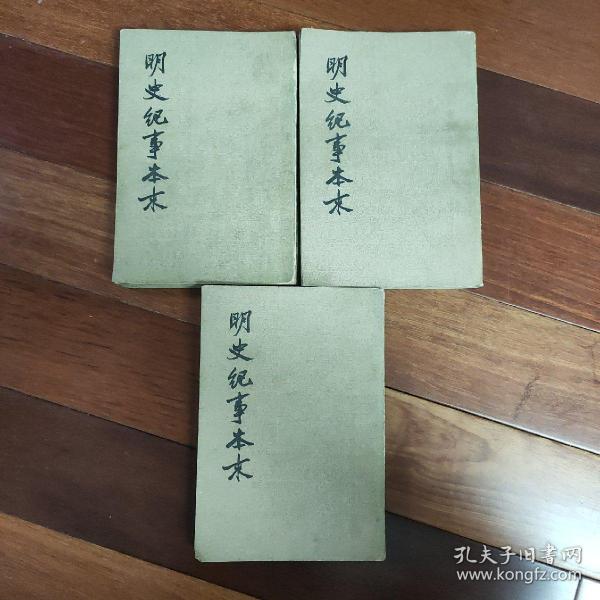 明史纪事本末
明史纪事本末
明史纪事本末
孔夫子旧书网
www.kongfz.com